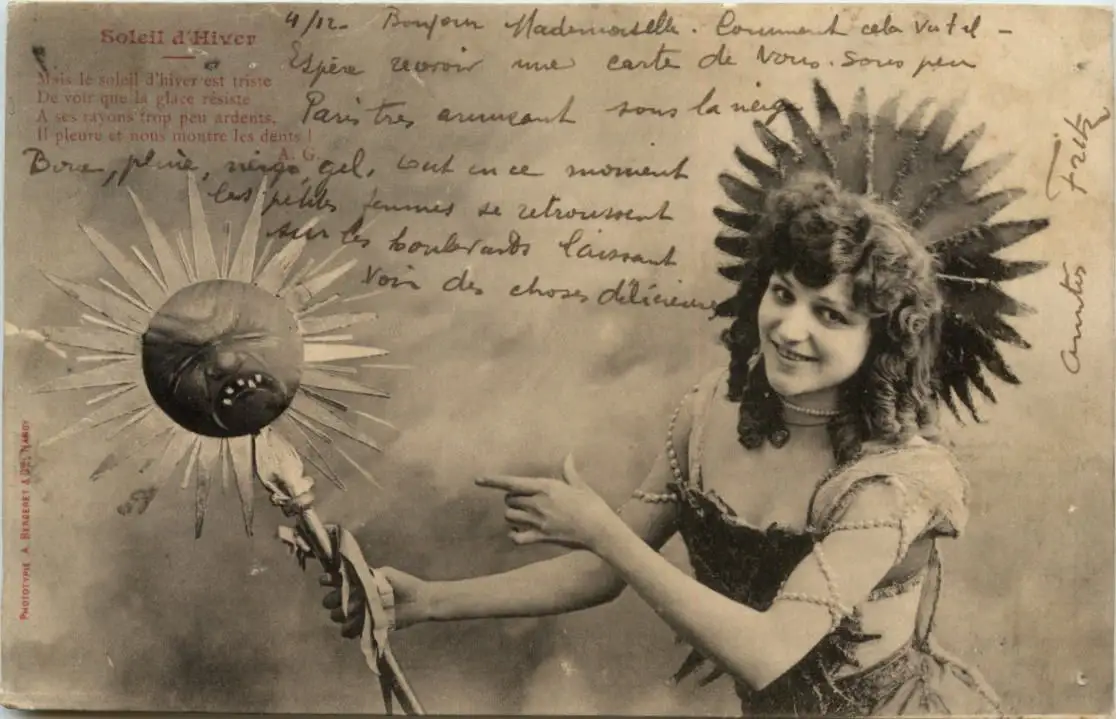 Soleil d'Hiver
Mais le soleil d'hiver est triste
De voir que la glace résiste
A ses rayons trop peu ardents,
Il pleure et nous montre les dents !
A. G.
4/12- Bonjour Mademoiselle. Comment cela va t il -
Espère recevoir une carte de Vous. Sous peu
Paris très amusant sous la neige
Boue, pluie, neige, gel, tout en ce moment
les petites femmes se retroussent
sur les boulevards laissant
voir des choses délicieuses
Fritz
PHOTOTYPIE A. BERGERET & Cie, NANCY